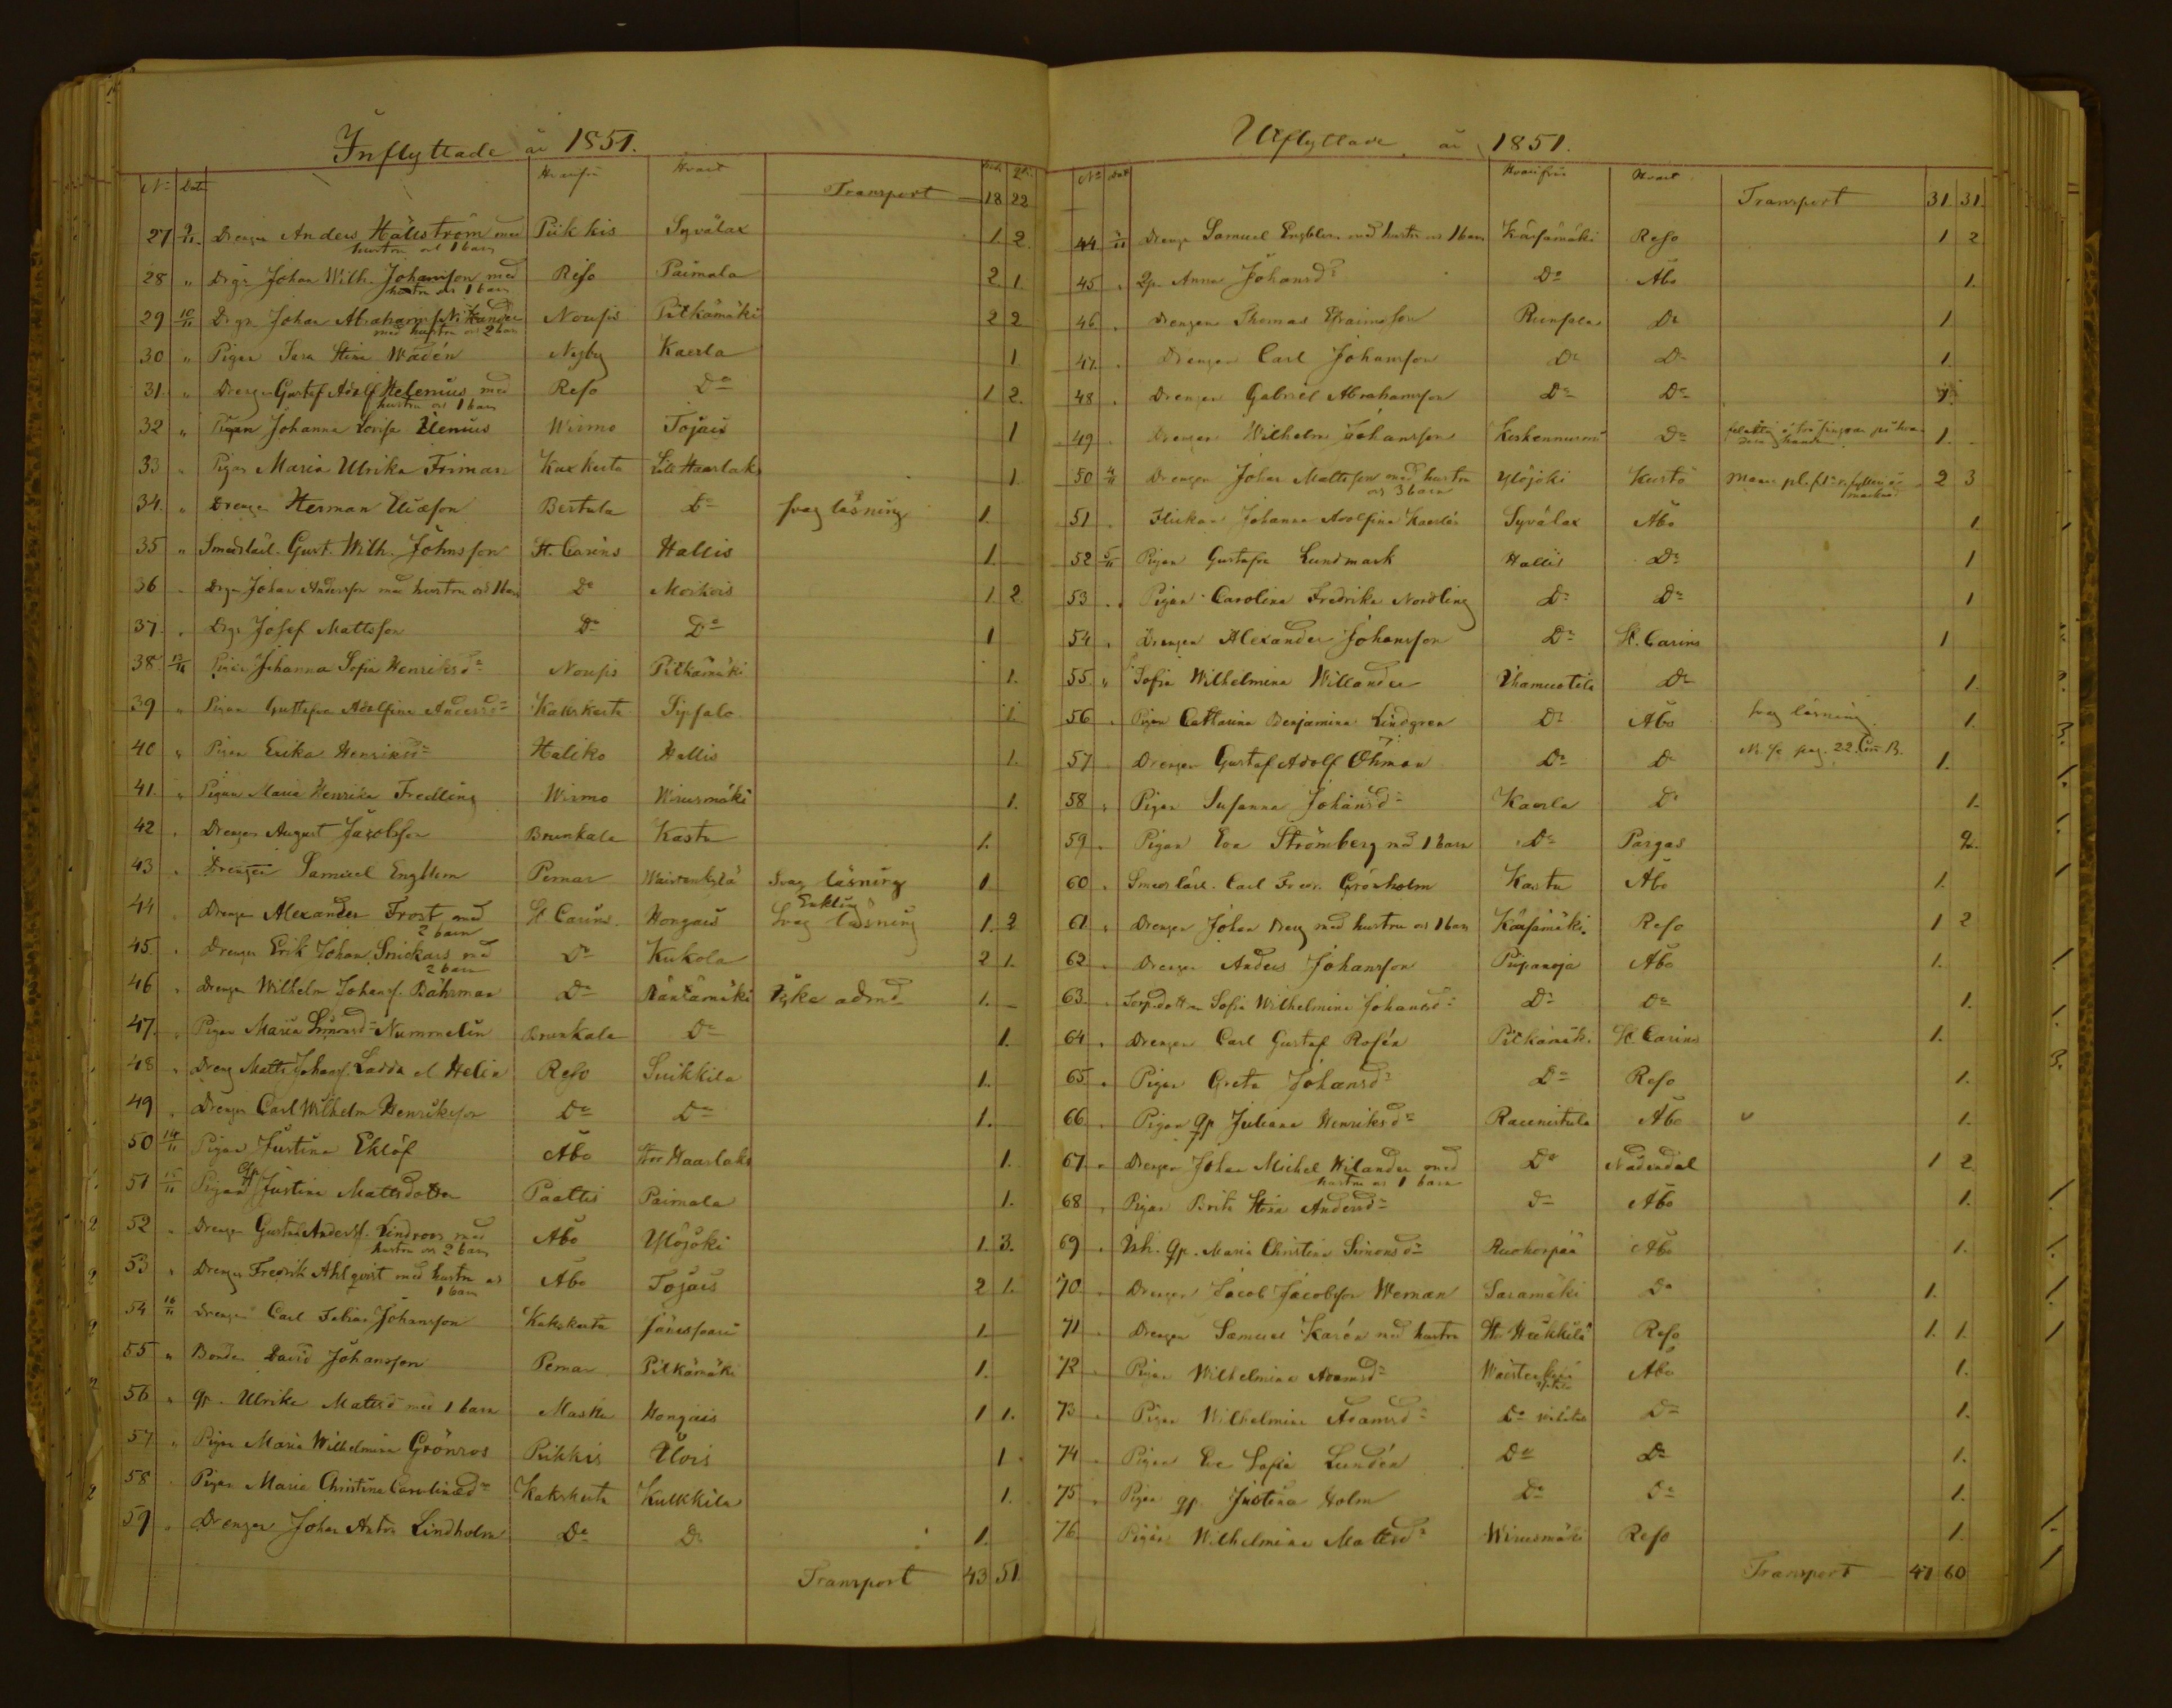 Inflyttade år 1851.
No Dat Hvarifrån Hvart Transport 18 22
27 9/11 Drengen Anders Hällström med hustru och 1 barn Piikkis Syvälax 1. 2.
28 " Drgn Johan Wilh. Johansson med hustru och 1 barn Reso Paimala 2 1.
29 10/11 Drgn Johan Abrahamss. Nikander med hustru och 2 barn Nousis Pitkämäki 2 2
30 " Pigan Sara Stina Wadén Nyby Kaerla 1
31. " Drengen Gustaf Adolf Helenius med hustru och 1 barn Reso Do 1 2.
32 " Pigan Johanna Lovisa Ilenius Wirmo Tojais 1
33 " Pigan Maria Ulrika Friman Kaxkerta Lill Haarlaks 1
34. " Drengen Herman Eliasson Bertula Do svag läsning 1.
35 " Smedslärl. Gust. Wilh. Johnsson St. Carins Hallis 1
36 " Drgn Johan Andersson med hustru och 1 barn Do Moikois 1. 2
37. " Drgn Josef Mattsson Do Do 1
38. 13/11 Pigan Johanna Sofia Henriksdr Nousis Pitkämäki 1.
39 " Pigan Gustafva Adolfina Andersdr Kakskerta Sipsalo 1.
40 " Pigan Erika Henriksdr Haliko Hallis 1.
41. " Pigan Maria Henrika Fredling Wirmo Wirusmäki 1.
42 " Drengen August Jacobsson Brunkala Kastu 1.
43 " Drengen Samuel Engblom Pemar Waistenkylä Svag läsning 1
44 " Drengen Alexander Frost med 2 barn St Carins Hongais Enkling Svag läsning 1. 2
45 " Drengen Erik Johan Snickars med 2 barn Do Kukola 2 1.
46 " Drengen Wilhelm Johanss. Båhrman Do 1.
47. " Pigan Maria Simonsdr Nummelin Brunkala Do 1.
48 " Dreng Matts Johanss. Ladda el Helin Reso Suikkila 1.
49 " Drengen Carl Wilhelm Henriksson Do Do 1.
50 14/11 Pigan Justina Eklöf Åbo Stor Haarlaks 1.
51 15/11 Pigan qp Justina Mattsdotter Paattis Paimala 1.
52 " Drengen Gustaf Anderss. Lindroos med hustru och 2 barn Åbo Ylöjoki 1. 3.
53 " Drengen Fredrik Ahlqvist med hustru och 1 barn Åbo Tojais 2 1.
54 16/11 Drengen Carl Johansson Kakskerta Jänessaari 1.
55 " Bonden David Johansson Pemar Pitkämäki 1.
56 " qp. Ulrika Matsd med 1 barn Masku Hongais 1 1.
57 " Pigan Maria Wilhelmina Grönros Piikkis Illois 1
58 Pigan Maria Christina Carolinædr Kakskerta Kulkkila 1.
59 " Drengen Johan Anton Lindholm Do Do 1.
Transport 43 51.
Utflyttade år 1851.
No Dat Hvarifrån Hvart Transport 31. 31.
44 Drengen Samuel Engblom med hustru och 1 barn Kärsämäki Reso 1 2
45 " qp. Anna Johansdr Do Åbo 1.
46 " Drengen Thomas Efraimsson Runsala Do 1
47. " Drengen Carl Johansson Do Do 1.
48 " Drengen Gabriel Abrahamsson Do Do 1.
49 " Drengen Wilhelm Johansson Koskennurmi Do 1.
50 4/11 Drengen Johan Mattsson med hustru och 3 barn Ylöjoki Kustö 2 3
51 " Flickan Johanna Adolfina Kaerlén Syvälax Åbo 1
52 5/11 Pigan Gustafva Lundmark Hallis Do 1
53 " Pigan Carolina Fredrika Nordling Do Do 1
54 " Drengen Alexander Johansson Do St. Carins 1
55 " Sofia Wilhelmina Willander Ihamuotila Do 1.
56 " Pigan Catharina Benjamina Lindgren Do Åbo svag läsning. 1.
57 " Drengen Gustaf Adolf Öhman Do Do pag. 22. Com. B. 1.
58 " Pigan Susanna Johansdr Kaerla Do 1.
59 " Pigan Eva Strömberg med 1 barn Do Pargas 2.
60 " Smedslärl. Carl Fredr. Grönholm Kastu Åbo 1.
61 " Drengen Johan Berg med hustru och 1 barn Kärsämäki Reso 1 2
62 " Drengen Anders Johansson Piipanoja Åbo 1.
63. " Torpdottren Sofia Wilhelmina Johansdr Do Do 1.
64 " Drengen Carl Gustaf Rosén Pitkämäki St Carins 1.
65 " Pigan Greta Johansdr Do Reso 1.
66 " Pigan qp Juliana Henriksdr Raunistula Åbo 1.
67. " Drengen Johan Michel Hilander med hustru och 1 barn Do Nådendal 1 2
68 " Pigan Brita Stina Andersdr Do Åbo 1.
69 " Inh. qp. Maria Christina Simonsdr Ruohonpää Åbo 1.
70 " Drengen Jacob Jacobsson Weman Saramäki Do 1.
71 " Drengen Samuel Karén med hustru St. Heikkilä Reso 1. 1.
72 Pigan Wilhelmina Adamsdr Waistenkylä Åbo 1.
73 " Pigan Wilhelmina Adamsdr Do Do 1.
74 " Pigan Eva Sofia Lundén Do Do 1.
75 " Pigan qp Justina Holm Do Do 1.
76 Pigan Wilhelmina Mattsdr Wirusmäki Reso 1.
Transport 47 60